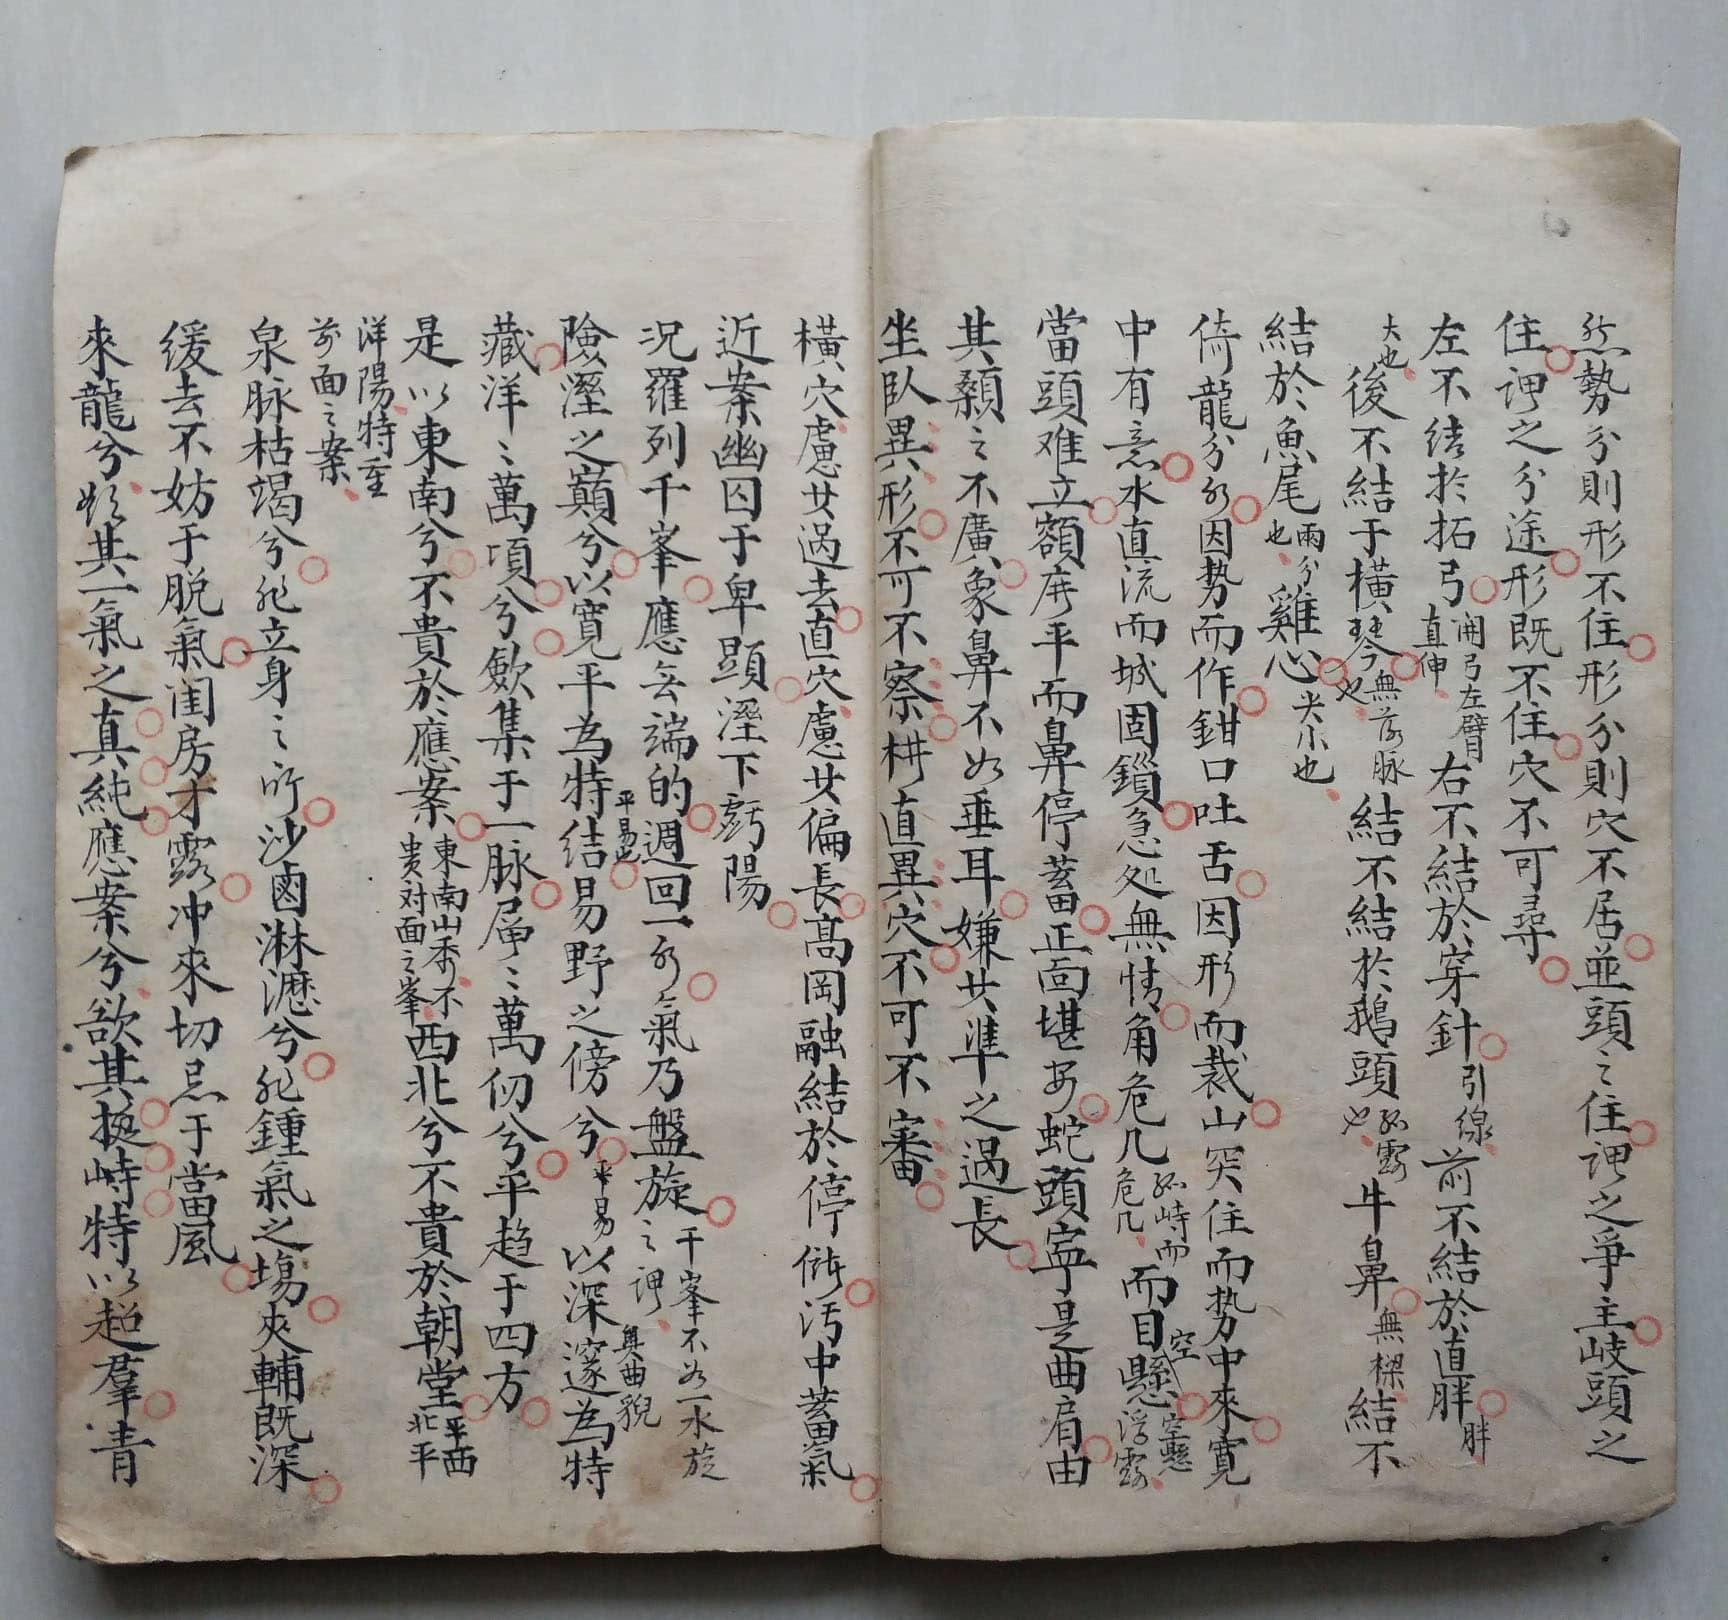 然勢分則形不住形分則穴不居並頭之住謂之爭主岐頭之
住謂之分途形既不住穴不可尋
左不结於拓弓開弓左臂直伸右不結於穿針引線前不結於直胖胖
大也後不結于橫琴無落脉也結不結於鵝頭孤露也牛鼻無樑結不
結於魚尾兩分也雞心尖小也
倚龍分因势而作鉗口吐舌因形而裁山突住而势中來寬
中有意水直流而城固鎖急处無情角危几孤峙而危几而目懸空空懸浮露
當頭难立額庠平而鼻停蓄正面堪安蛇頭寧是曲肩由
其顙之不廣象鼻不如垂耳嫌其準之過長
坐臥異形不可不察横直異穴不可不審
橫穴慮其過去直穴慮其偏長高岡融結於停儲污中蓄氣
近案幽囚于卑顕溼下虧陽
况羅列千峯應無端的週回一水氣乃盤旋千峯不如一水旋之謂
險溼之巔兮以寬平為特結平易也易野之傍兮平易以深邃為特奥曲貌
藏洋々萬頃兮歛集于一脉層々萬仞兮平趋于四方
是以東南兮不貴於應案東南山秀不贵对面之峯西北兮不貴於朝堂平西北平
洋陽特重
前面之案
泉脉枯竭兮非立身之所沙鹵淋瀝兮非鍾氣之塲夾輔既深
缓去不妨于脱氣闺房才露冲來切忌于當風
來龍兮其一氣之真純應案兮欲其挺峙特以超羣青